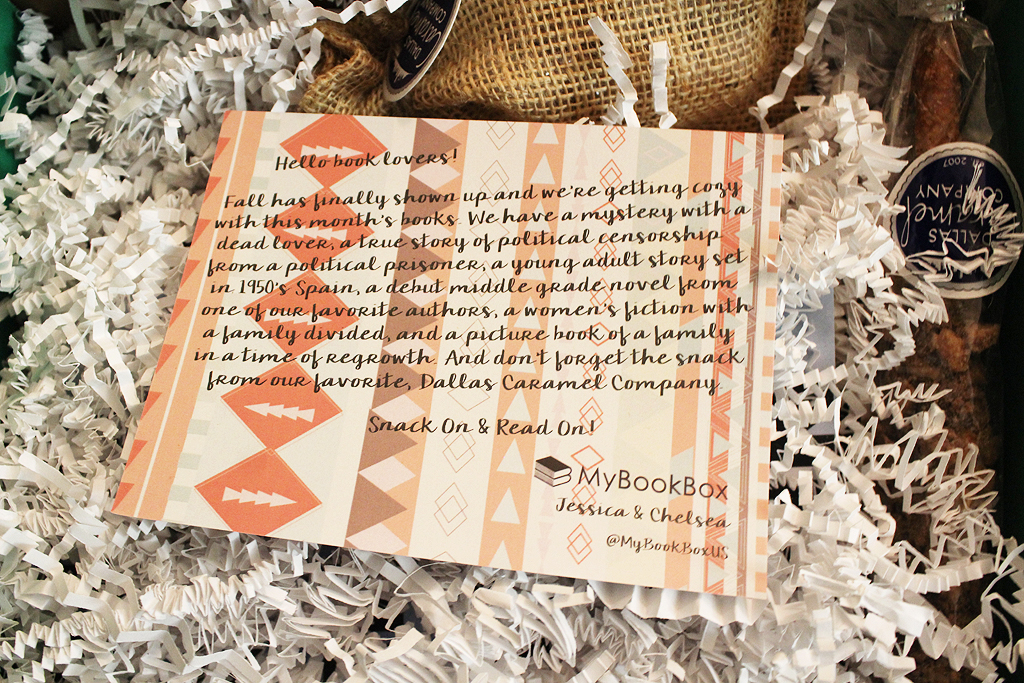 DALLAS
caramel
COMPANY
Hello book lovers!
Fall has finally shown up and we're getting cozy
with this month's books. We have a mystery with a
dead lover, a true story of political censorship
from a political prisoner, a young adult story set
in 1950's Spain, a debut middle grade novel from
one of our favorite authors, a women's fiction with
a family divided, and a picture book of a family
in a time of regrowth. And don't forget the snack
from our favorite, Dallas Caramel Company.
Snack On & Read On!
MyBookBox
Jessica & Chelsea
@MyBookBoxUS
2007
DALLAS
caramel
COMPANY